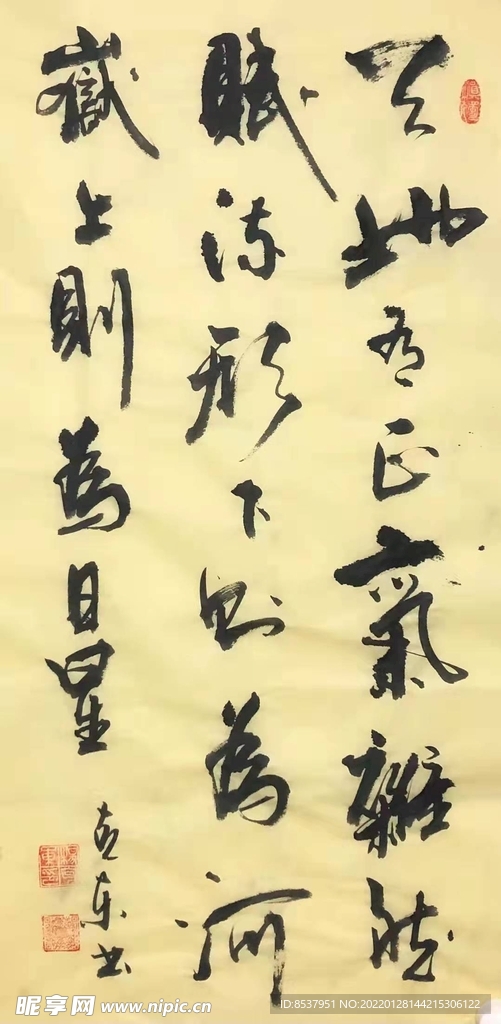 天地有正氣雜然
賦流形下則為河
嶽上則為日星
东书
昵享网 www.nipic.cn
ID:8537951 NO:20220128144215306122